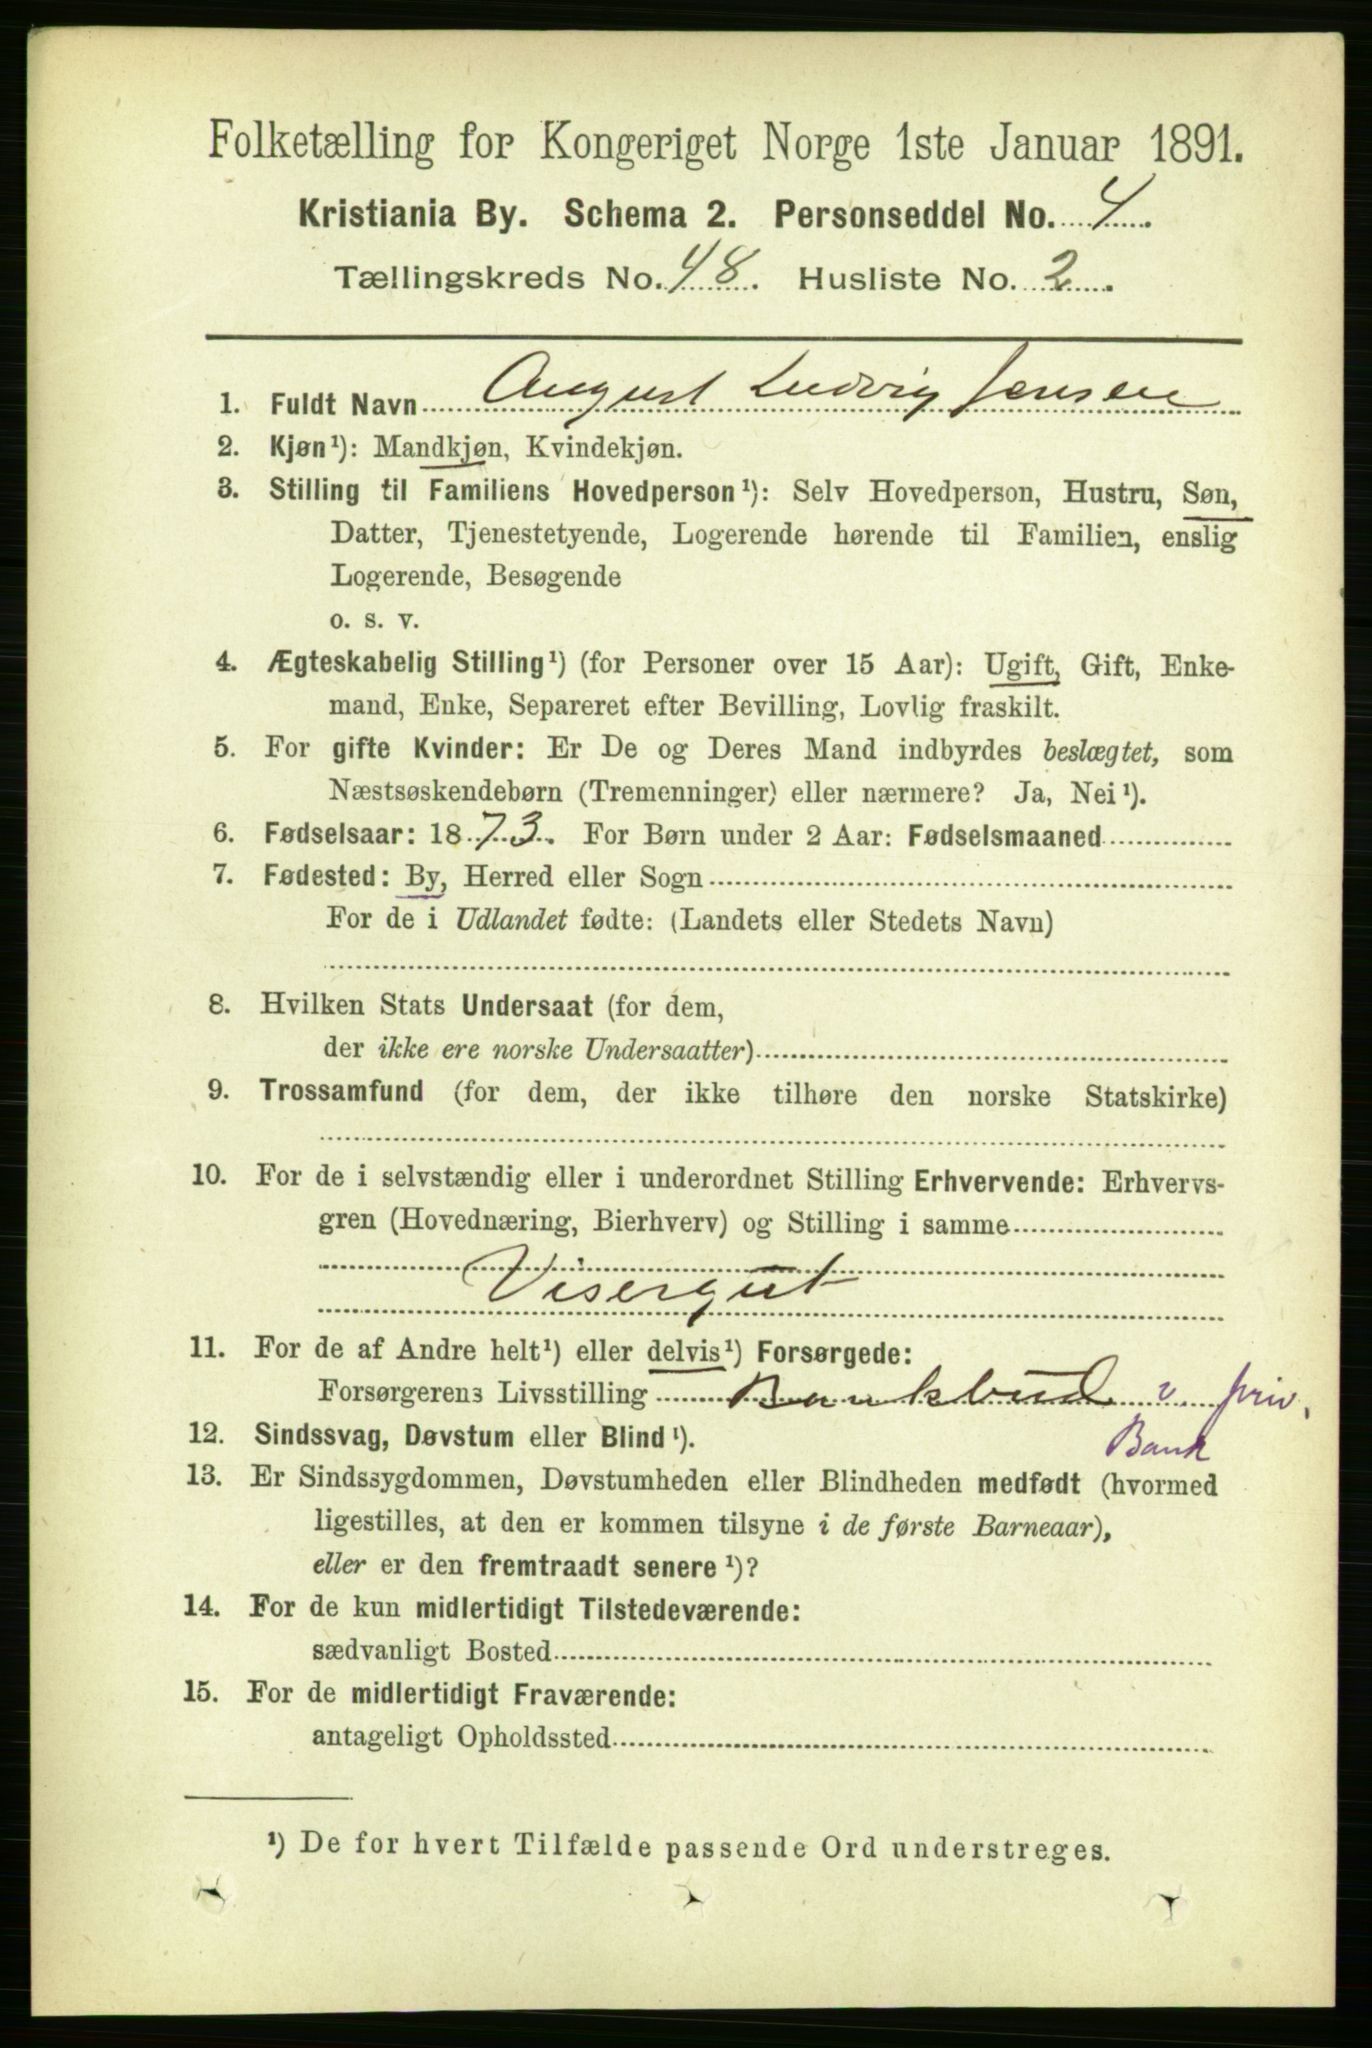 Folketælling for Kongeriget Norge 1ste Januar 1891.
Kristiania By. Schema 2. Personseddel No. 4.
Tællingskreds No. 48. Husliste No. 2.
1. Fuldt Navn August Ludvig Jensen
2. Kjøn¹): Mandkjøn, Kvindekjøn.
3. Stilling til Familiens Hovedperson¹): Selv Hovedperson, Hustru, Søn,
Datter, Tjenestetyende, Logerende hørende til Familien, enslig
Logerende, Besøgende
o. s. v.
4. Ægteskabelig Stilling¹) (for Personer over 15 Aar): Ugift, Gift, Enke-
mand, Enke, Separeret efter Bevilling, Lovlig fraskilt.
5. For gifte Kvinder: Er De og Deres Mand indbyrdes beslægtet, som
Næstsøskendebørn (Tremenninger) eller nærmere? Ja, Nei¹).
6. Fødselsaar: 1873. For Børn under 2 Aar: Fødselsmaaned
7. Fødested: By, Herred eller Sogn
For de i Udlandet fødte: (Landets eller Stedets Navn)
8. Hvilken Stats Undersaat (for dem,
der ikke ere norske Undersaatter)
9. Trossamfund (for dem, der ikke tilhøre den norske Statskirke)
10. For de i selvstændig eller i underordnet Stilling Erhvervende: Erhvervs-
gren (Hovednæring, Bierhverv) og Stilling i samme
Visergut
11. For de af Andre helt¹) eller delvis¹) Forsørgede:
Forsørgerens Livsstilling Bankbud v. priv.
Bank
12. Sindssvag, Døvstum eller Blind¹).
13. Er Sindssygdommen, Døvstumheden eller Blindheden medfødt (hvormed
ligestilles, at den er kommen tilsyne i de første Barneaar),
eller er den fremtraadt senere¹)?
14. For de kun midlertidigt Tilstedeværende:
sædvanligt Bosted
15. For de midlertidigt Fraværende:
antageligt Opholdssted
¹) De for hvert Tilfælde passende Ord understreges.